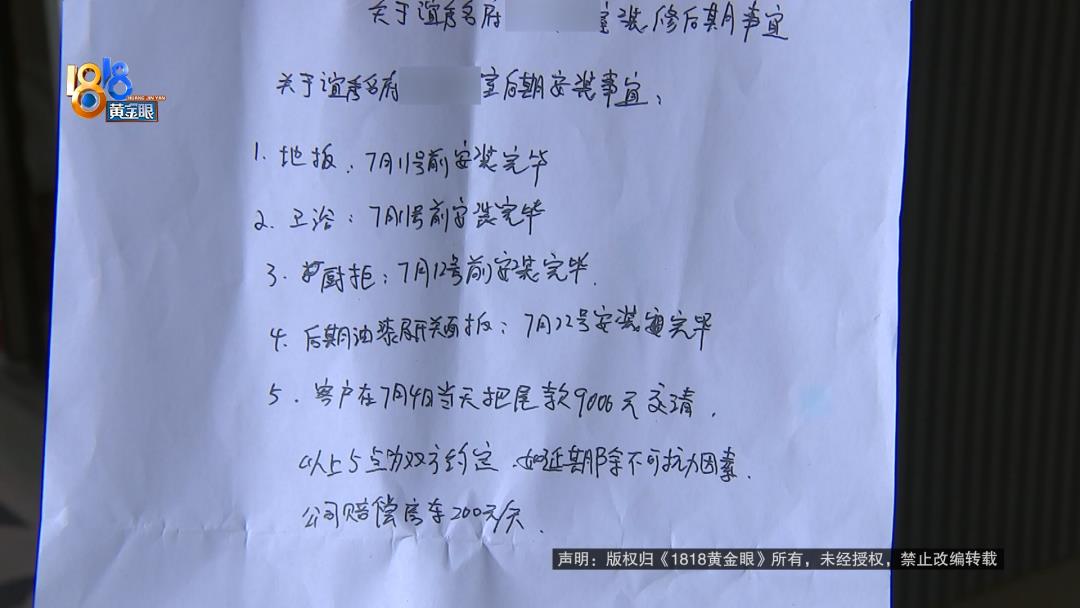 关于谊秀名府 室装修后期事宜
1818
HUANG JIN YAN
黄金眼
关于谊秀名府 室后期安装事宜：
1. 地板：7月11号前安装完毕
2. 卫浴：7月11号前安装完毕
3. 厨柜：7月12号前安装完毕.
4. 后期油漆 开关面板：7月22号安装 完毕
5. 客户在7月4日当天把尾款9006元交清.
以上5点为双方约定.如延期 除不可抗力因素.
公司赔偿 200元/天.
声明：版权归《1818黄金眼》所有，未经授权，禁止改编转载